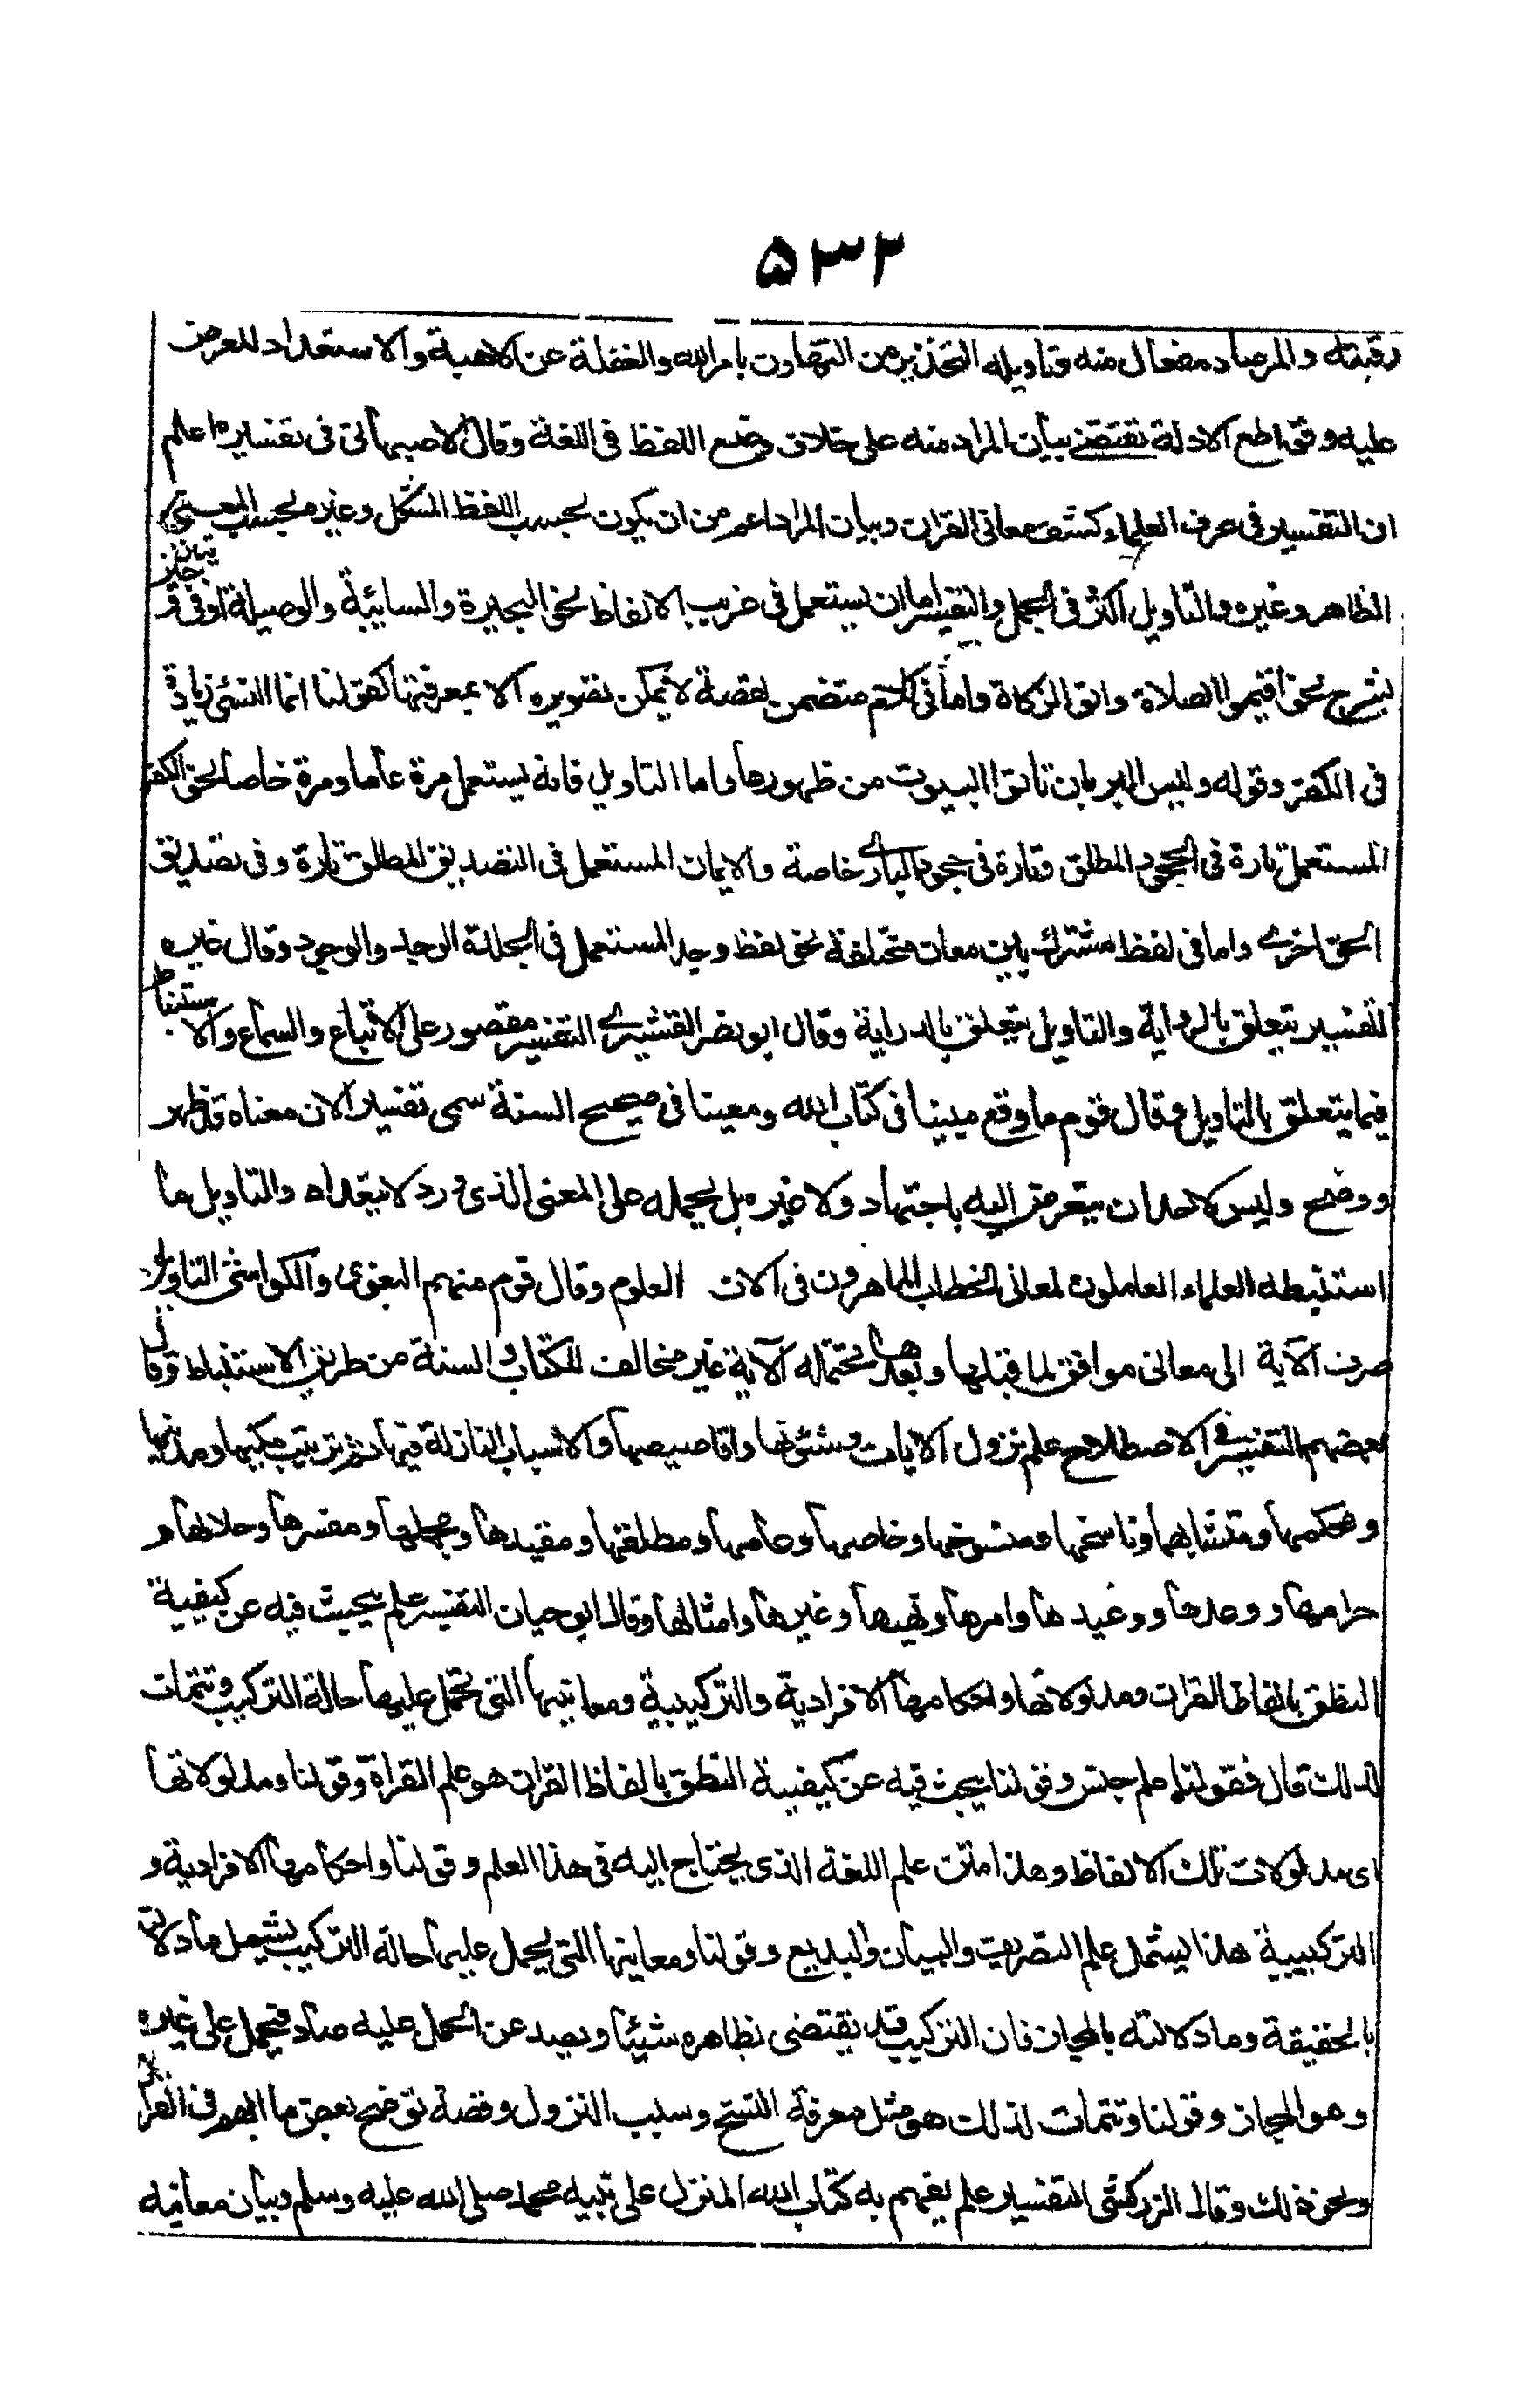 ٥٣٢
رقبته والمرصاد مفعال منه وتاويله التحذير من التهاون بامر الله والغفلة عن الاهبة والاستعداد للعرض
عليه وقواطع الادلة تقتضے بيان المراد منه على خلاف وضع اللفظ فى اللغة وقال الاصبهانى فى تفسيره اعلم
ان التفسير فى عرف العلماء كشف معانى القران وبيان المراد اعم من ان يكون بحسب اللفظ المشكل وغيره بحسب المعنى
الظاهر وغيره والتاويل اكثره فى الجمل والتفسير اما ان يستعمل فى غريب الالفاظ نحو البحيرة والسائبة والوصيلة او فى وجيز يتبين
بشرح نحو اقيموا الصلاة واتوا الزكاة واما فى كلام متضمن لقصة لا يمكن تصويره الا بمعرفتها كقولنا انما النسئ زيادة
فى الكفر وقوله وليس البر بان تاتوا البيوت من ظهورها واما التاويل فانه يستعمل مرة عاما ومرة خاصا نحو الكفر
المستعمل تارة فى الجحود المطلق وتارة فى جحود البارے خاصة والايمان المستعمل فى التصديق المطلق تارة وفى تصديق
الحق اخرے واما فى لفظ مشترك بين معان مختلفة نحو لفظ وجد المستعمل فى الجدة الوجد والوجود وقال غيره
التفسير يتعلق بالرواية والتاويل يتعلق بالدراية وقال ابو نصر القشيرے التفسير مقصور على الاتباع والسماع والاستنباط
فيما يتعلق بالتاويل وقال قوم ما وقع مبينا فى كتاب الله ومعينا فى صحيح السنة سمى تفسيرا لان معناه قد ظهر
ووضح وليس لاحد ان يتعرض اليه باجتهاد ولا غيره بل يحمله على المعنى الذى ورد لا يتعداه والتاويل ما
استنبطه العلماء العاملون لمعانى الخطاب الماهرون فى الات العلوم وقال قوم منهم البغوى والكواشى التاويل
صرف الآية الى معانى موافق لما قبلها وبعدها تحتمله الآية غير مخالف للكتاب والسنة من طريق الاستنباط وقال
بعضهم التفسير فى الاصطلاح علم نزول الايات وشئونها واقاصيصها والاسباب النازلة فيها ثم ترتيب مكيها ومدنيها
ومحكمها ومتشابهها وناسخها ومنسوخها وخاصها وعامها ومطلقها ومقيدها ومجملها ومفسرها وحلالها و
حرامها ووعدها ووعيدها وامرها ونهيها وغيرها وامثالها وقال ابو حيان التفسير علم يبحث فيه عن كيفية
النطق بالفاظ القران ومدلولاتها واحكامها الافرادية والتركيبية ومعانيها التى تحمل عليها حالة التركيب وتتمات
لذلك قال فقولنا علم جنس وقولنا يبحث فيه عن كيفية النطق بالفاظ القران هو علم القراة وقولنا ومدلولاتها
اى مدلولات تلك الالفاظ وهذا متن علم اللغة الذى يحتاج اليه فى هذا العلم وقولنا واحكامها الافرادية و
التركيبية هذا يشمل علم التصريف والبيان والبديع وقولنا ومعانيها التى يحمل عليها حالة التركيب يشمل ما دلالته
بالحقيقة وما دلالته بالمجاز فان التركيب قد يقتضى بظاهره شيئا ويصد عن الحمل عليه صاد فيحمل على غيره
وهو المجاز وقولنا وتتمات لذلك هو مثل معرفة النسخ وسبب النزول وقصة توضح بعض ما ابهم فى القران
ونحو ذلك وقال الزركشى التفسير علم يفهم به كتاب الله المنزل على نبيه محمد صلى الله عليه وسلم وبيان معانيه